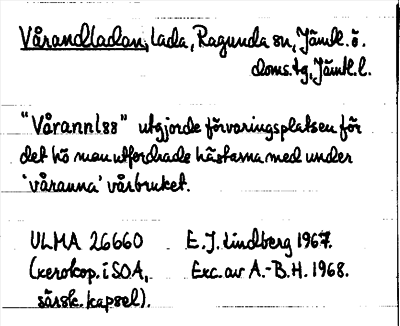 Vårandladan, lada, Ragunda sn, Jämtl. ö.
doms.tg, Jämtl. l.
"Vårannlss" utgjorde förvaringsplatsen för
det hö man utfordrade hästarna med under
'våranna' vårbruket.
ULMA 26660 E. J. Lindberg 1967.
(xerokop. i SOA, Exc. av A.-B. H. 1968.
särsk. kapsel).